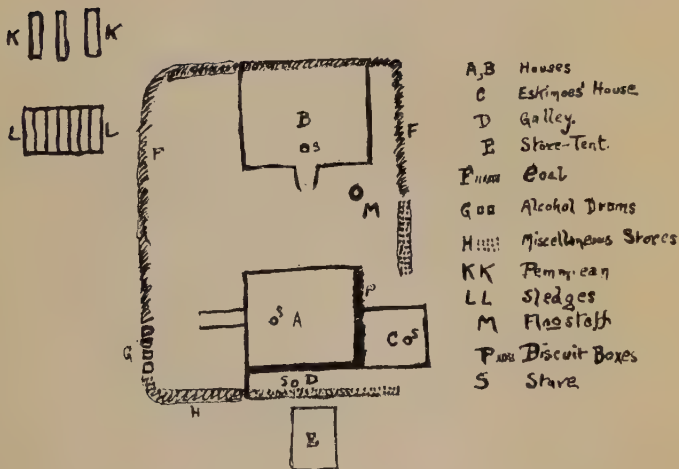 K K
L L
B
S
F
F
M
S A
P
C S
G
S D
H
E
A,B Houses
C Eskimoes' House
D Galley.
E Store-Tent.
F Coal
G Alcohol Drums
H Miscellaneous Stores
KK Pemmican
LL Sledges
M Flagstaff
P Biscuit Boxes
S Stove